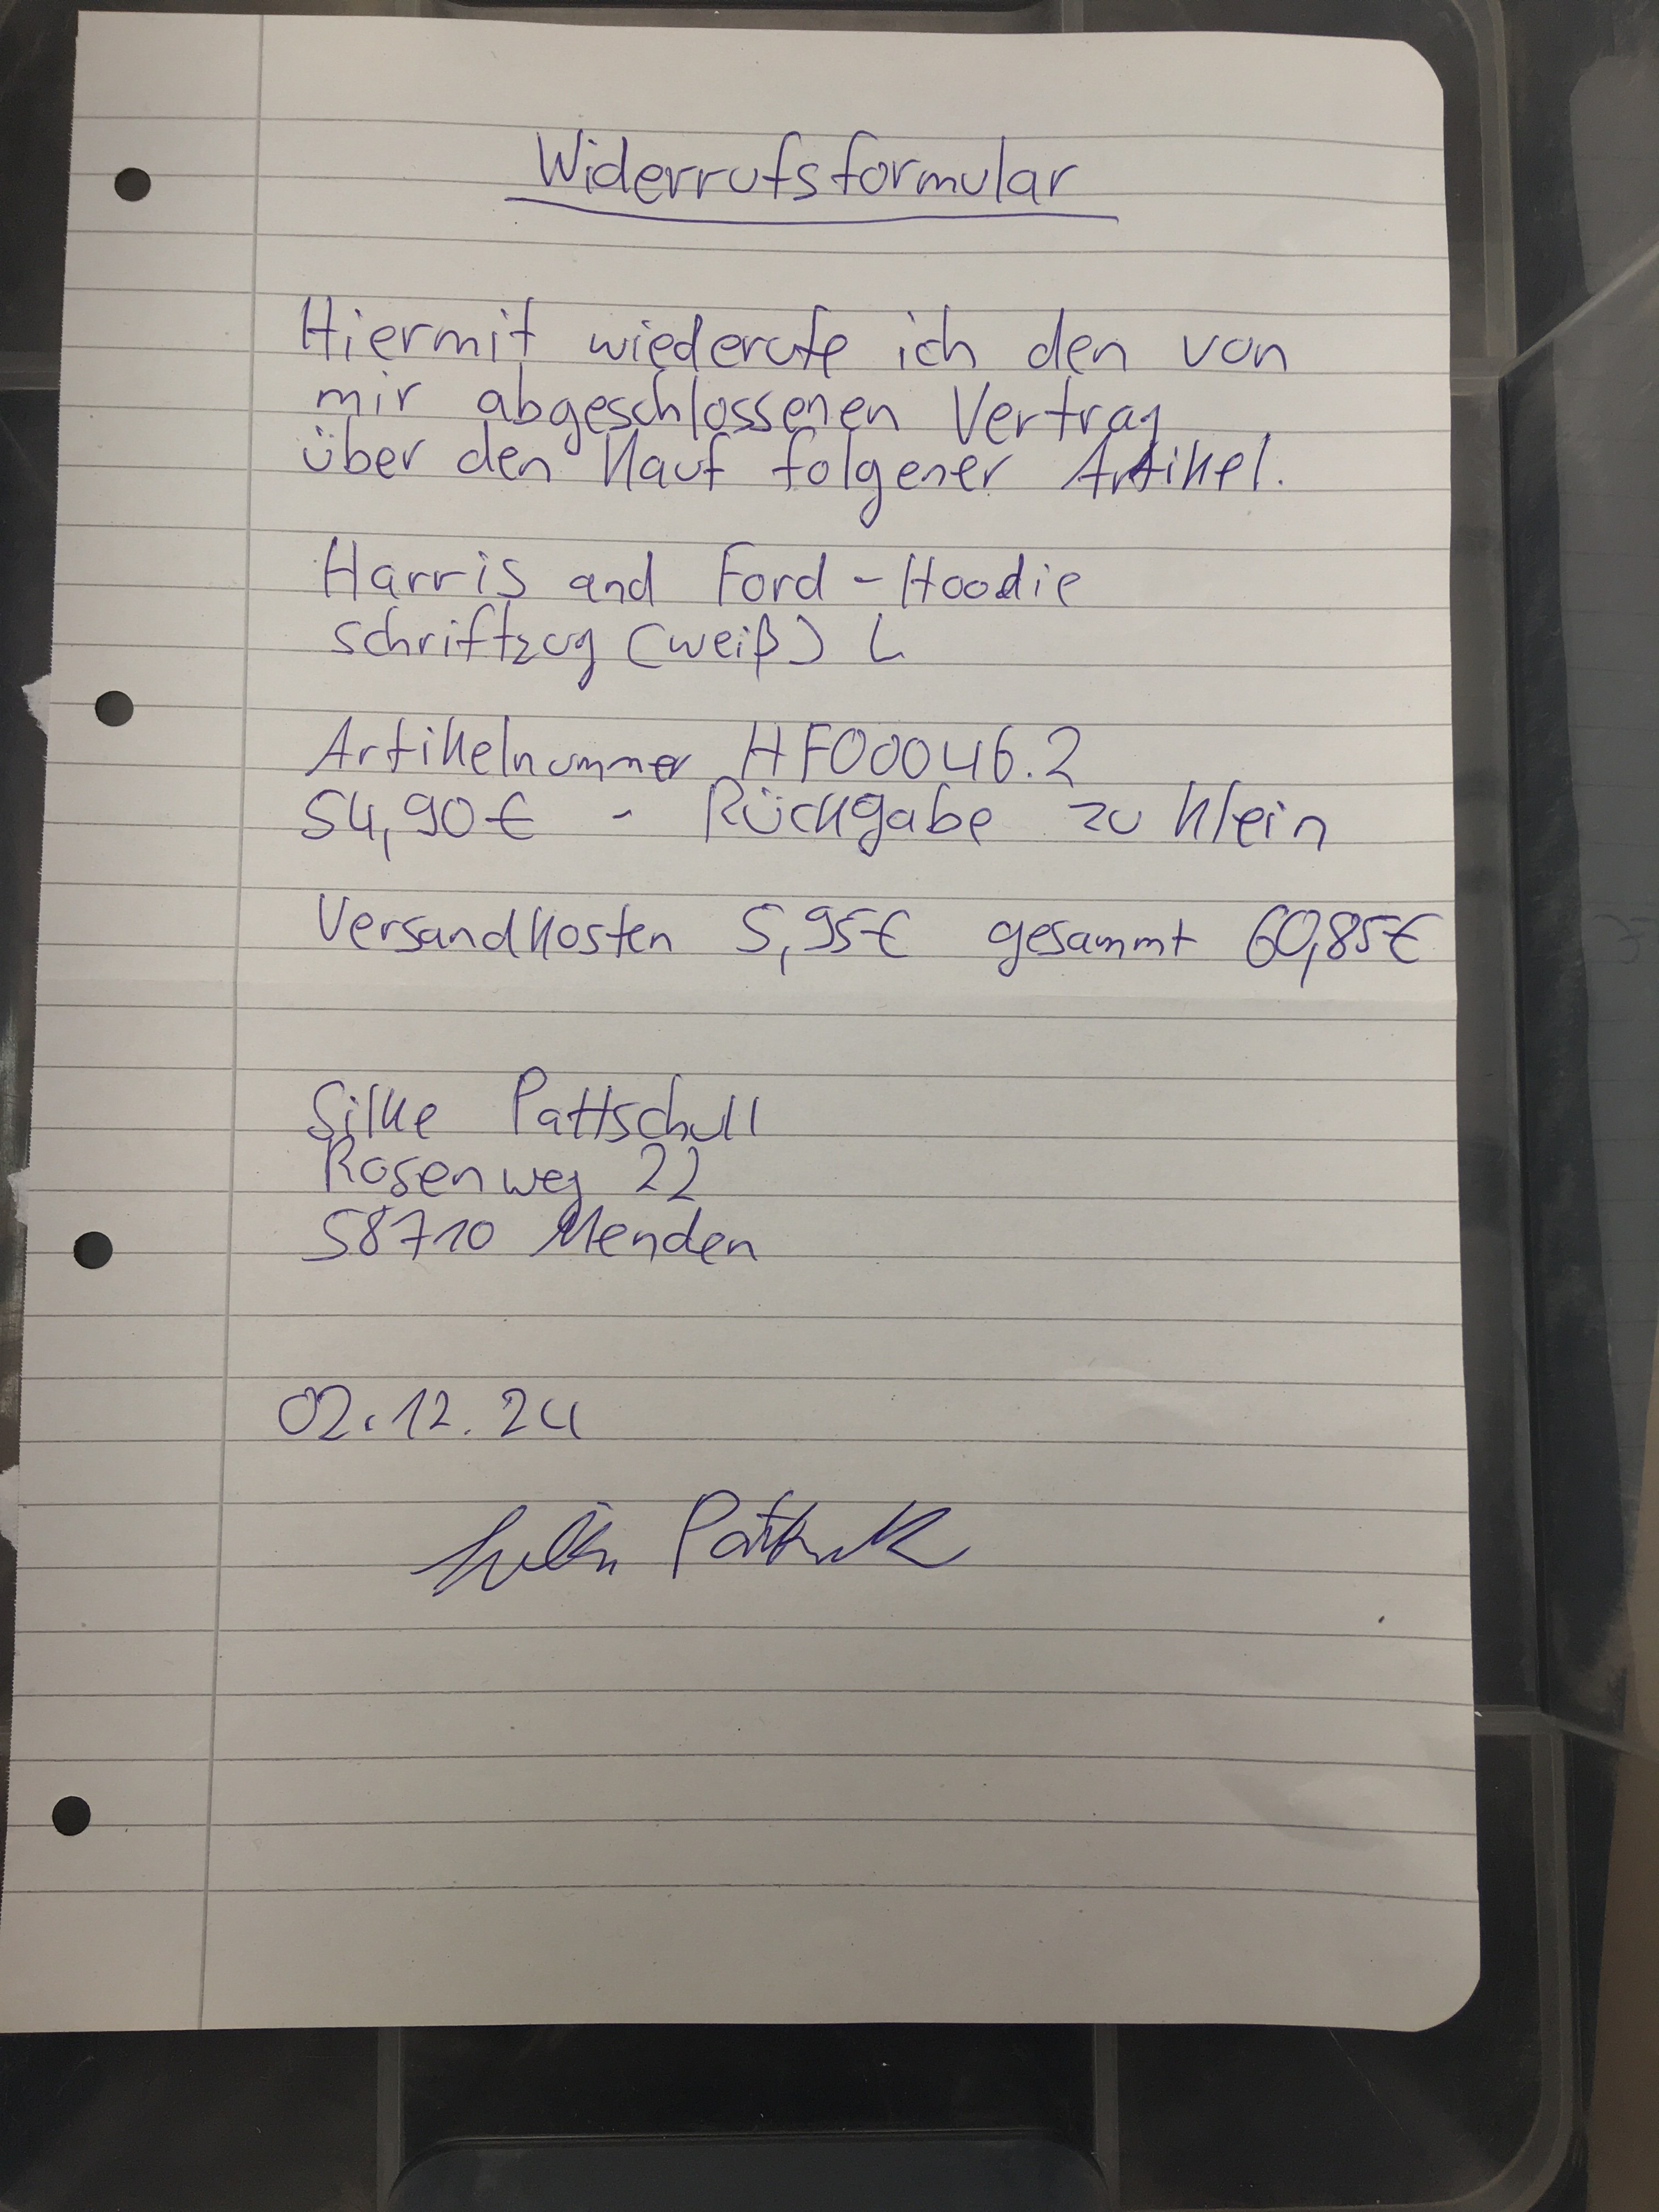 Widerrufsformular
Hiermit wiederufe ich den von
mir abgeschlossenen Vertrag
über den Kauf folgener Artikel.
Harris and Ford - Hoodie
Schriftzug (weiß) L
Artikelnummer HF00046.2
54,90€ - Rückgabe zu klein
Versandkosten 5,95€ gesammt 60,85€
Silke Pattschull
Rosenweg 22
58710 Menden
02.12.24